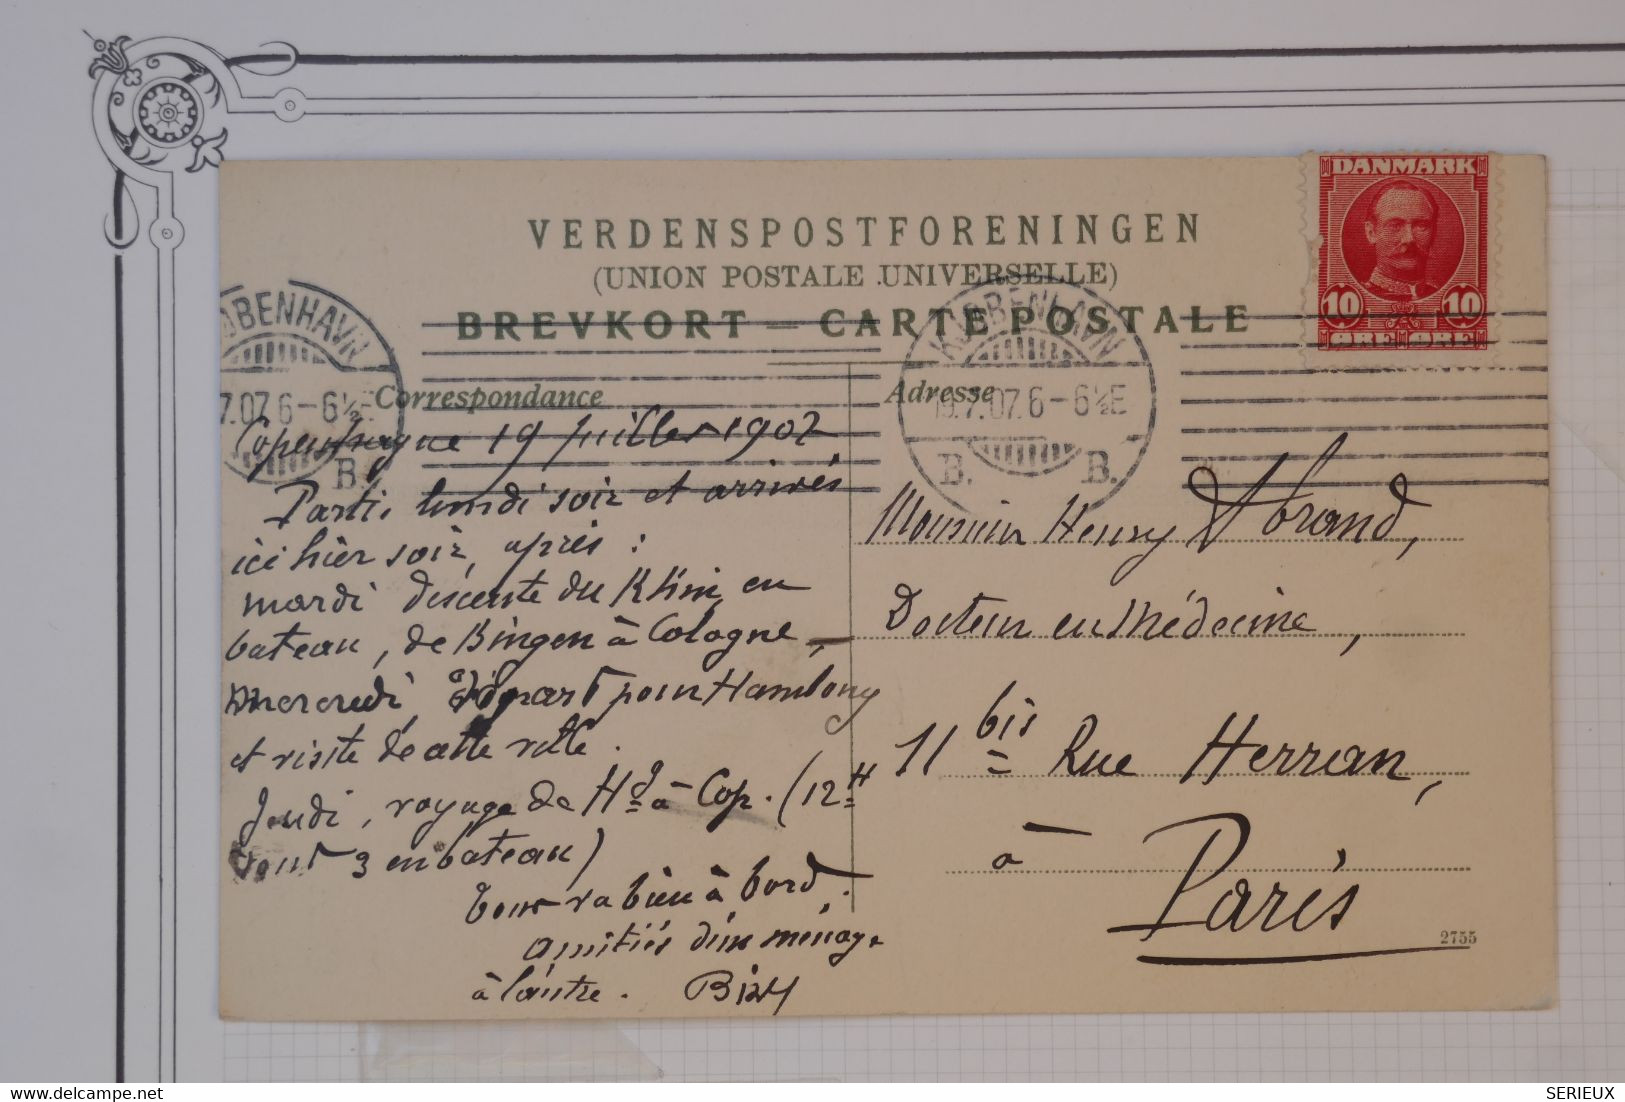 DANMARK
10 10
ØRE ØRE
VERDENSPOSTFORENINGEN
(UNION POSTALE UNIVERSELLE)
BREVKORT — CARTE POSTALE
KJØBENHAVN
19.7.07. 6-6½E
B. B.
ØBENHAVN
7.07. 6-6½E
B.
Correspondance
Copenhague 19 juillet 1907
Parti lundi soir et arrivés
ici hier soir, après :
mardi descente du Rhin, en
bateau, de Bingen à Cologne, —
Mercredi départ pour Hambourg
et visite de cette ville.
Jeudi, voyage de Hg à Cop. (12 H
dont 3 en bateau)
Tout va bien à bord.
Amitiés d'un ménage
à l'autre.
Adresse
Monsieur Henry
Docteur en Médecine,
11 bis Rue Herran,
à
Paris
2755
delcampe.net
SERIEUX